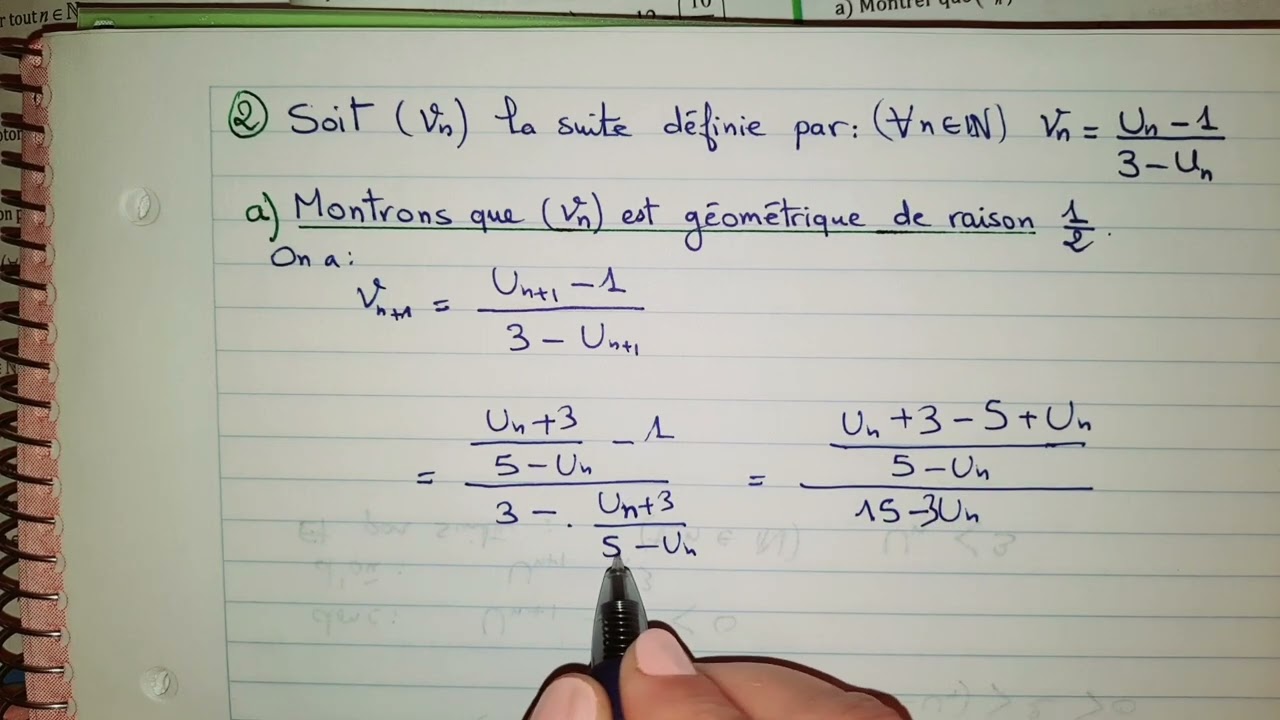 r tout n ∈ ℕ
a) Montrer que
② Soit (Vn) la suite définie par: (∀n∈ℕ) Vn = (Un - 1)/(3 - Un)
a) Montrons que (Vn) est géométrique de raison 1/2.
On a:
Vn+1 = (Un+1 - 1)/(3 - Un+1)
= ((Un+3)/(5-Un) - 1)/(3 - . (Un+3)/(5-Un)) = ((Un+3-5+Un)/(5-Un))/(15-3Un)